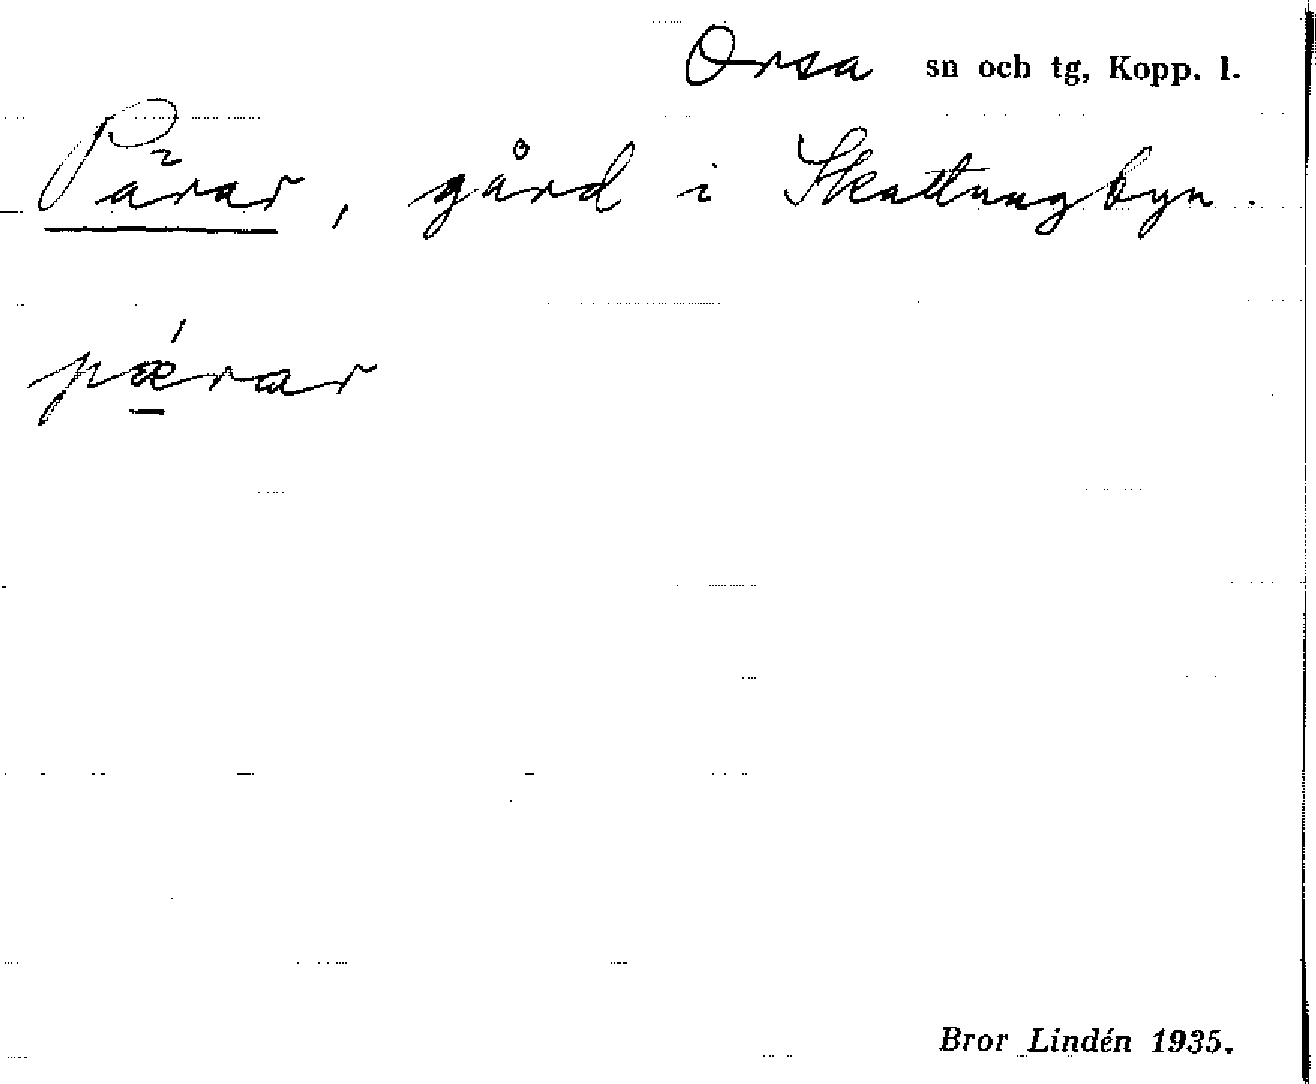 Orsa sn och tg, Kopp. l.
Pärar, gård i Skattungbyn.
pǽrar
Bror Lindén 1935.